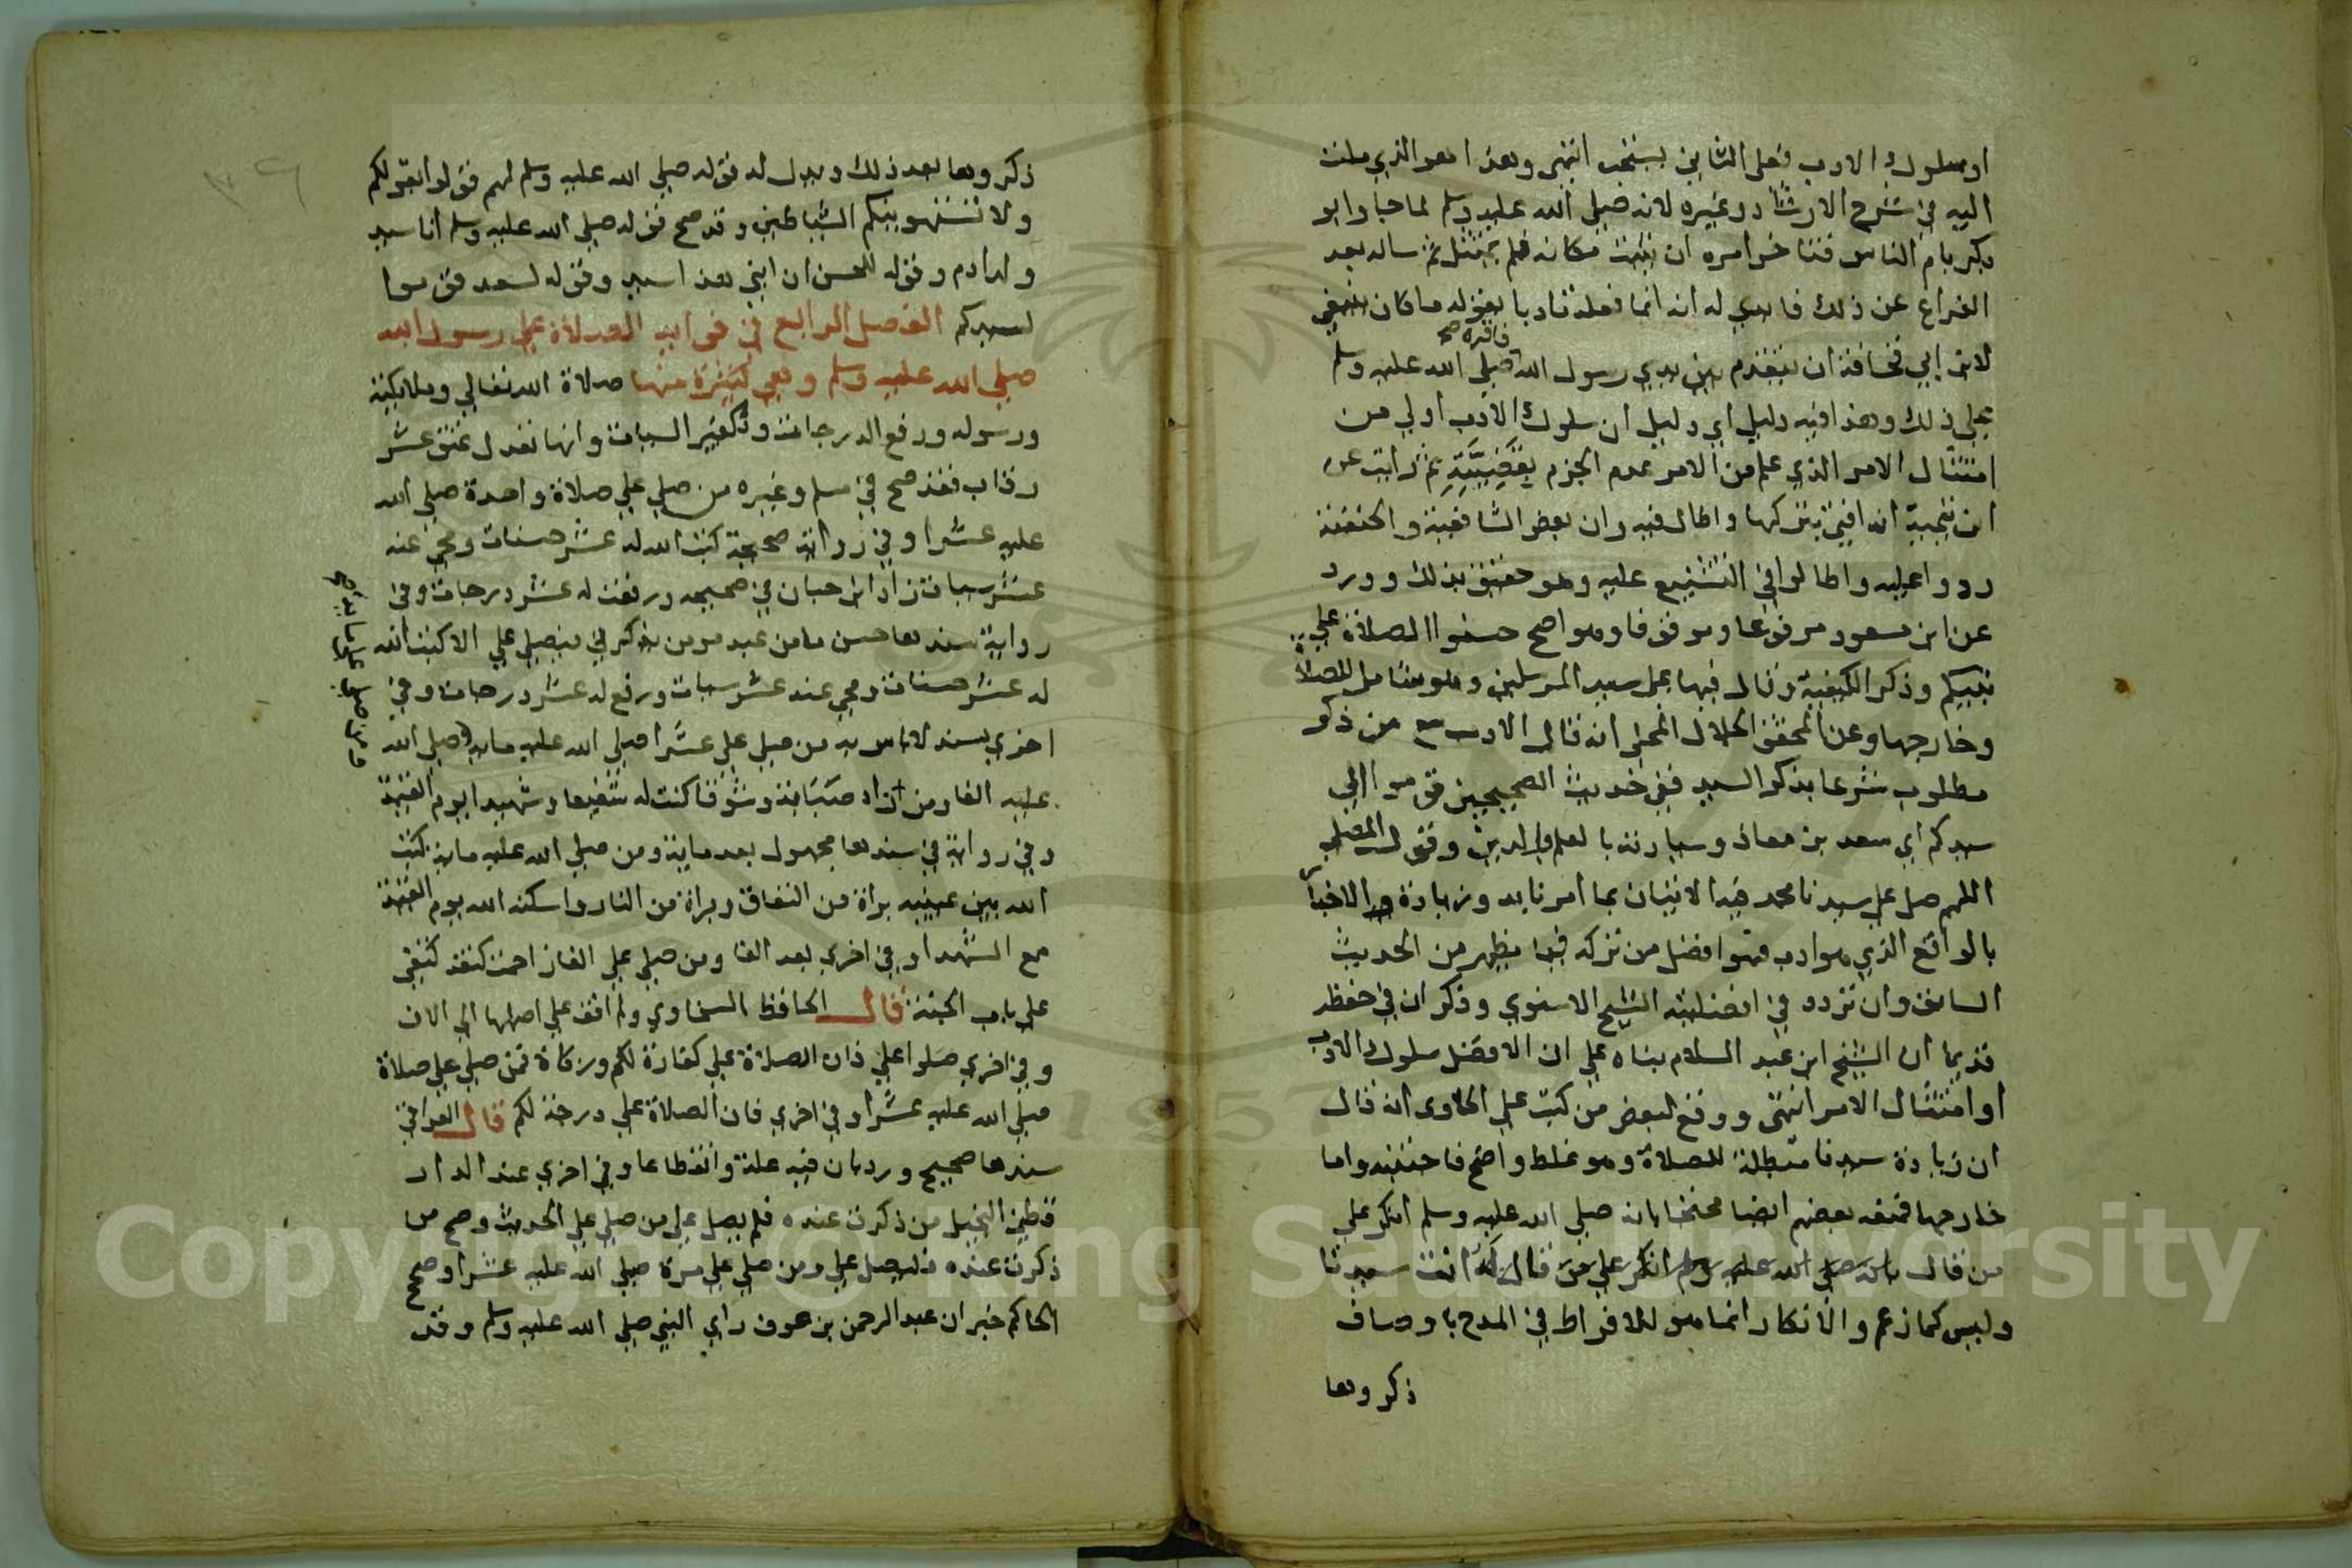 او سلوك الادب فعلى الثاني يستحب انتهى وهذا هو الذي ملت
اليه في شرح الارشاد وغيره لانه صلى الله عليه وسلم لما جا وابو
بكر يام الناس فتاخر امره ان يثبت مكانه فلم يمتثل ثم ساله بعد
الفراغ عن ذلك فابدى له انه انما فعله تادبا بقوله ما كان ينبغي
لابن ابي قحافة ان يتقدم بين يدي رسول الله صلى الله عليه وسلم
فاقره صح
على ذلك وهذا فيه دليل اي دليل ان سلوك الادب اولى من
امتثال الامر الذي علم من الامر عدم الجزم بقضيته ثم رايت عن
ابن تيمية انه افتى بتركها واطال فيه وان بعض الشافعية والحنفية
ردوا عليه واطالوا في التشنيع عليه وهو حقيق بذلك وورد
عن ابن مسعود مرفوعا وموقوفا وهو اصح حسنوا الصلاة على
نبيكم وذكر الكيفية وقال فيها على سيد المرسلين وهو شامل للصلاة
وخارجها وعن المحقق الجلال المحلى انه قال الادب مع من ذكر
مطلوب شرعا بذكر السيد ففي حديث الصحيحين قوموا الى
سيدكم اي سعد بن معاذ وسيادته بالعلم والدين وقول المصلى
اللهم صل على سيدنا محمد فيه الاتيان بما امرنا به وزيادة الاخبار
بالواقع الذي هو ادب فهو افضل من تركه فيما يظهر من الحديث
السابق وان تردد في افضليته الشيخ الاسنوي وذكر ان في حفظه
قديما ان الشيخ ابن عبد السلام بناه على ان الافضل سلوك الادب
او امتثال الامر انتهى ووقع لبعض من كتب على الحاوى انه قال
ان زيادة سيدنا مبطلة للصلاة وهو غلط واضح فاجتنبه واما
خارجها فمنعه بعضهم ايضا محتجا بانه صلى الله عليه وسلم انكر على
من قال بانه صلى الله عليه وسلم انكر على من قال له انت سيدنا
وليس كما زعم والانكار انما هو للافراط في المدح باوصاف
ذكروها
ذكروها بعد ذلك ويدل له قوله صلى الله عليه وسلم لهم قولوا بقولكم
ولا تستهوينكم الشياطين وقد صح قوله صلى الله عليه وسلم انا سيد
ولد ادم وقوله للحسن ان ابني هذا سيد وقوله لسعد قوموا
لسيدكم الفصل الرابع في فوايد الصلاة على رسول الله
صلى الله عليه وسلم وهي كثيرة منها صلاة الله تعالى وملايكته
ورسوله ورفع الدرجات وتكفير السيات وانها تعدل عتق عشر
رقاب فقد صح في مسلم وغيره من صلى علي صلاة واحدة صلى الله
عليه عشرا وفي رواية صحيحة كتب الله له عشر حسنات ومحى عنه
عشر سيات زاد ابن حبان في صحيحه ورفعت له عشر درجات وفي
رواية سندها حسن ما من عبد مومن يذكرني فيصلي علي الا كتب الله
له عشر حسنات ومحى عنه عشر سيات ورفع له عشر درجات وفي
اخرى بسند لا باس به من صلى علي عشرا صلى الله عليه ماية وصلى الله
عليه الفا ومن زاد صبابة وشوقا كنت له شفيعا وشهيدا يوم القيمة
وفي رواية في سندها مجهول بعد ماية ومن صلى الله عليه ماية كتب
الله بين عينيه براة من النفاق وبراة من النار واسكنه الله يوم القيمة
مع الشهدا وفي اخرى بعد الفا ومن صلى علي الفا زاحمت كتفه كتفي
على باب الجنة قال الحافظ السخاوي ولم اقف على اصلها الى الان
وفي اخرى صلوا علي فان الصلاة علي كفارة لكم وزكاة فمن صلى علي صلاة
صلى الله عليه عشرا وفي اخرى فان الصلاة علي درجة لكم قال العراقي
سندها صحيح ورد بان فيه علة وانقطاعا وفي اخرى عند الدار
قطني البخيل من ذكرت عنده فلم يصل علي من صلى علي الحديث وصح من
ذكرت عنده فليصل علي ومن صلى علي مرة صلى الله عليه عشرا وصحح
الحاكم خبر ان عبد الرحمن بن عوف راى النبي صلى الله عليه وسلم وقد
Copyright © King Saud University
1957